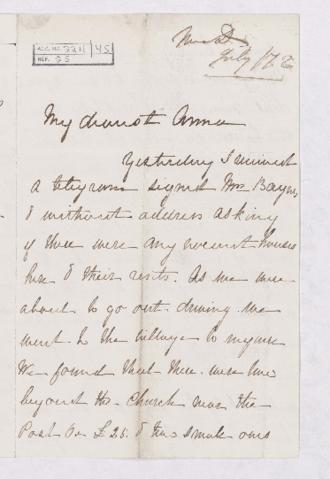 ACC. NO. 2211/45
REF. 25
July 17th
My dearest Anna
Yesterday I received
a telegram signed Mrs. Baynes
& without address asking
if there were any vacant houses
here & their rents. As we were
about to go out driving we
went to the village to inquire
We found that there were two
beyond the Church near the
Post Of. £25. & two small ones